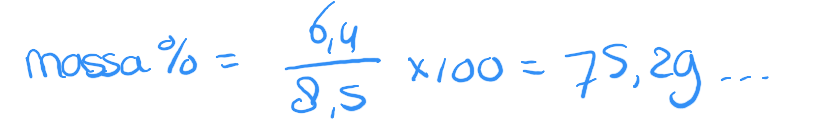 massa % = 6,4 / 8,5 x 100 = 75,29 ...